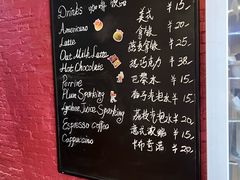 Drinks
Americano 美式 ¥15
Latte 拿铁 ¥20
Oat Milk Latte 燕麦拿铁 ¥25
Hot Chocolate 热巧克力 ¥38
Perrier 巴黎水 ¥15
Plum Sparking 气泡水 ¥15
Lychee Juice Sparking 荔枝气泡水 ¥20
Espresso coffee 意式浓缩 ¥15
Cappuccino 卡布奇诺 ¥20